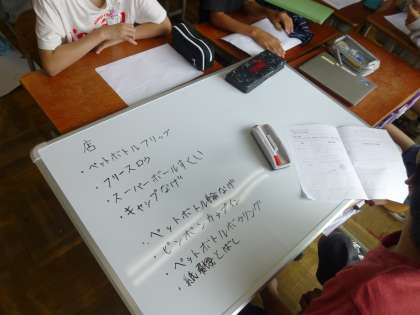 店
・ペットボトルフリップ
・フリースロウ
・スーパーボールすくい
・キャップなげ
・ペットボトル輪なげ
・ピンポンカップイン
・ペットボトルボウリング
・紙 とばし